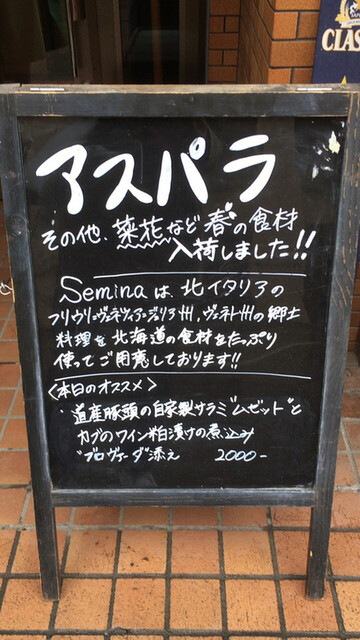 CLAS
アスパラ
その他、菜花など春の食材
入荷しました!!
Seminaは、北イタリアの
フリウリ・ヴェネツィア・ジュリア州、ヴェネト州の郷土
料理を北海道の食材をたっぷり
使ってご用意しております!!
<本日のオススメ>
・道産豚頭の自家製サラミ"ムゼット"と
カブのワイン粕漬けの煮込み
"ブロヴァーダ"添え 2000-